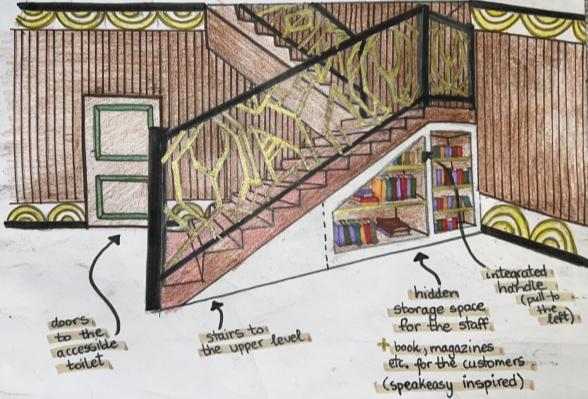 doors
to the
accessible
toilet
stairs to
the upper level
hidden
storage space
for the staff
+ book, magazines
etc. for the customers
(speakeasy inspired)
integrated
handle
(pull to
the
left)